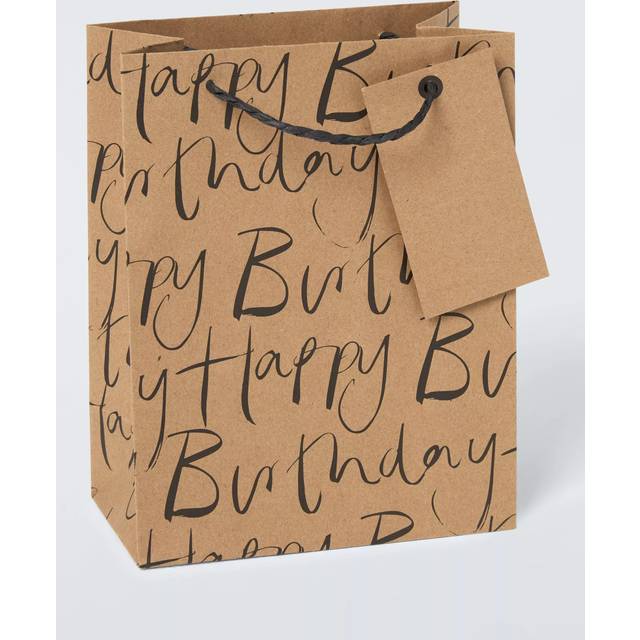 Happy Bi
irthday
ppy Birth
y Happy Bu
Birthday
Happy Birt